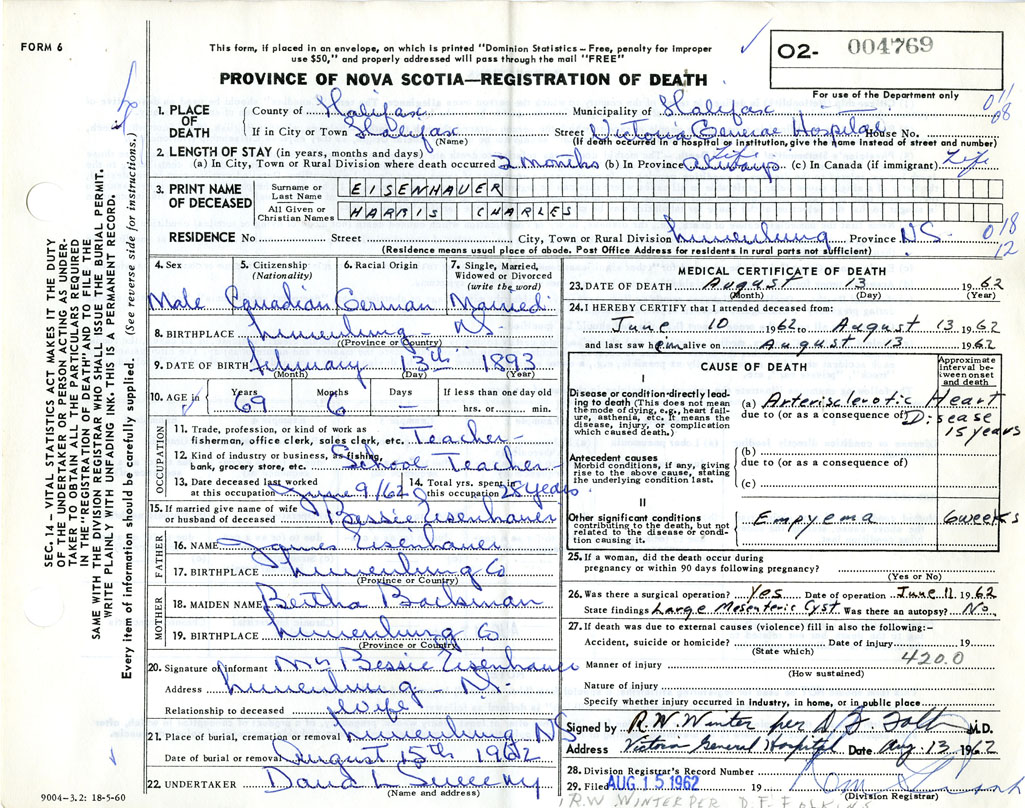 FORM 6
This form, if placed in an envelope, on which is printed "Dominion Statistics – Free, penalty for improper
use $50," and properly addressed will pass through the mail "FREE"
PROVINCE OF NOVA SCOTIA—REGISTRATION OF DEATH
O2- 004769
For use of the Department only
011
08
1. PLACE OF DEATH
County of Halifax Municipality of Halifax
If in City or Town Halifax Street Victoria General Hospital House No.
(Name) (If death occurred in a hospital or institution, give the name instead of street and number)
2. LENGTH OF STAY (in years, months and days)
(a) In City, Town or Rural Division where death occurred 2 months (b) In Province always Life (c) In Canada (if immigrant) Life
3. PRINT NAME OF DECEASED
Surname or Last Name EISENHAUER
All Given or Christian Names HARRIS CHARLES
RESIDENCE No. Street City, Town or Rural Division Lunenburg Province N.S.
018
12
(Residence means usual place of abode. Post Office Address for residents in rural parts not sufficient)
4. Sex Male
5. Citizenship (Nationality) Canadian
6. Racial Origin German
7. Single, Married, Widowed or Divorced (write the word) Married
8. BIRTHPLACE Lunenburg - N.S.
(Province or County)
9. DATE OF BIRTH February 13th 1893
(Month) (Day) (Year)
10. AGE in Years 69 Months 6 Days – If less than one day old hrs. or min.
OCCUPATION
11. Trade, profession, or kind of work as
fisherman, office clerk, sales clerk, etc. Teacher
12. Kind of industry or business, as fishing,
bank, grocery store, etc. School Teacher
13. Date deceased last worked at this occupation June 9/62
14. Total yrs. spent in this occupation 28 years
15. If married give name of wife or husband of deceased Bessie Eisenhauer
FATHER
16. NAME James Eisenhauer
17. BIRTHPLACE Lunenburg Co
(Province or Country)
MOTHER
18. MAIDEN NAME Bertha Backman
19. BIRTHPLACE Lunenburg Co
(Province or Country)
20. Signature of informant Mrs Bessie Eisenhauer
Address Lunenburg - N.S.
Relationship to deceased Wife
21. Place of burial, cremation or removal Lunenburg NS
Date of burial or removal August 15th 1962
22. UNDERTAKER
(Name and address)
9004-3.2: 18-5-60
MEDICAL CERTIFICATE OF DEATH
23. DATE OF DEATH August 13 1962
(Month) (Day) (Year)
24. I HEREBY CERTIFY that I attended deceased from:
June 10 1962 to August 13 1962
and last saw him alive on August 13 1962
CAUSE OF DEATH
Approximate interval between onset and death
I
Disease or condition directly leading to death (This does not mean
the mode of dying, e.g., heart failure, asthenia, etc. It means the
disease, injury, or complication which caused death.)
(a) Arterisclerotic Heart Disease 15 years
due to (or as a consequence of)
Antecedent causes
Morbid conditions, if any, giving
rise to the above cause, stating
the underlying condition last.
(b)
due to (or as a consequence of)
(c)
II
Other significant conditions
contributing to the death, but not
related to the disease or condition causing it.
Empyema 6 weeks
25. If a woman, did the death occur during
pregnancy or within 90 days following pregnancy?
(Yes or No)
26. Was there a surgical operation? Yes Date of operation June 11 1962
State findings Large Mesenteric Cyst Was there an autopsy? No
27. If death was due to external causes (violence) fill in also the following:–
Accident, suicide or homicide? Date of injury 19
(State which)
420.0
Manner of injury
(How sustained)
Nature of injury
Specify whether injury occurred in industry, in home, or in public place
Signed by R.W. Winter per D F. M.D.
Address Victoria General Hospital Date Aug. 13 1962
28. Division Registrar's Record Number
29. Filed AUG 15 1962 19
(Division Registrar)
R.W WINTER PER D. F.
SEC. 14 – VITAL STATISTICS ACT MAKES IT THE DUTY
OF THE UNDERTAKER OR PERSON ACTING AS UNDERTAKER TO OBTAIN ALL THE PARTICULARS REQUIRED
IN THE "REGISTRATION OF DEATH" AND TO FILE THE
SAME WITH THE DIVISION REGISTRAR WHO SHALL ISSUE THE BURIAL PERMIT.
WRITE PLAINLY WITH UNFADING INK. THIS IS A PERMANENT RECORD.
Every item of information should be carefully supplied. (See reverse side for instructions.)